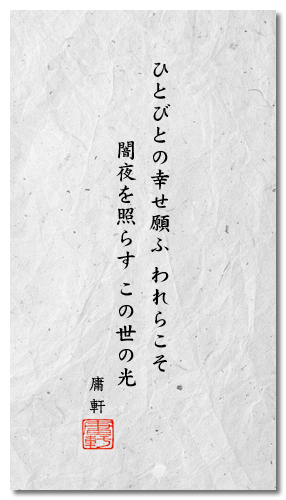 ひとびとの幸せ願ふ われらこそ
闇夜を照らす この世の光
庸軒
庸軒